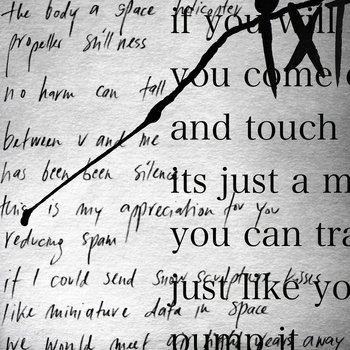 the body a space helicopter
propeller stillness
no harm can fall
between v and me
has been been silence
this is my appreciation for you
reducing spam
if I could send snow sculpture kisses
like miniature data in space
we would meet light years away
if you will
you come
and touch
its just a m
you can tra
just like yo
pump it
IXT